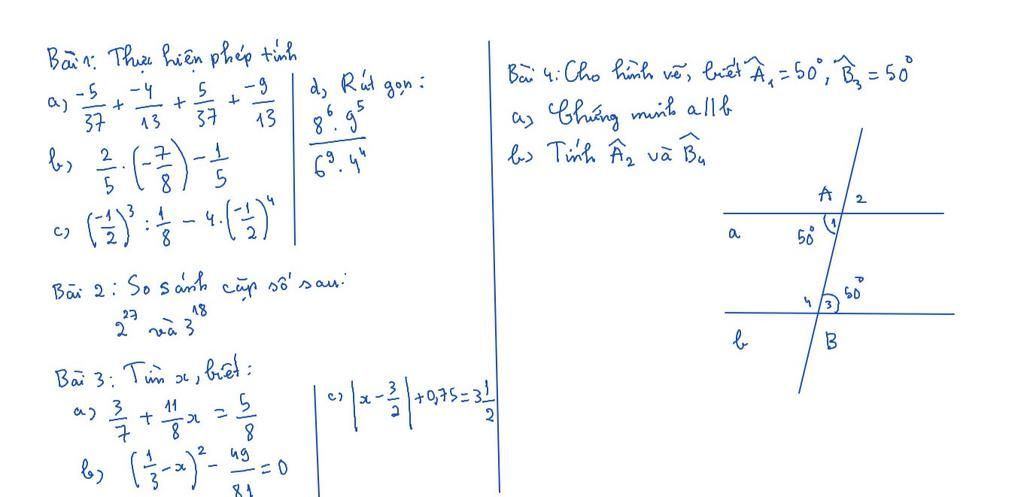 Bài 1: Thực hiện phép tính
a, -5/37 + -4/13 + 5/37 + -9/13
b, 2/5 . (-7/8) - 1/5
c, (-1/2)³ : 1/8 - 4.(-1/2)⁴
d, Rút gọn:
8⁶ . 9⁵ / 6⁹ . 4⁴
Bài 2: So sánh cặp số sau:
2²⁷ và 3¹⁸
Bài 3: Tìm x, biết:
a, 3/7 + 11/8 x = 5/8
b, (1/3 - x)² - 49/81 = 0
c, |x - 3/2| + 0,75 = 3 1/2
Bài 4: Cho hình vẽ, biết Â₁ = 50°, B̂₃ = 50°
a, Chứng minh a//b
b, Tính Â₂ và B̂₄
A 2
a 50° 1
4 3 50°
b B